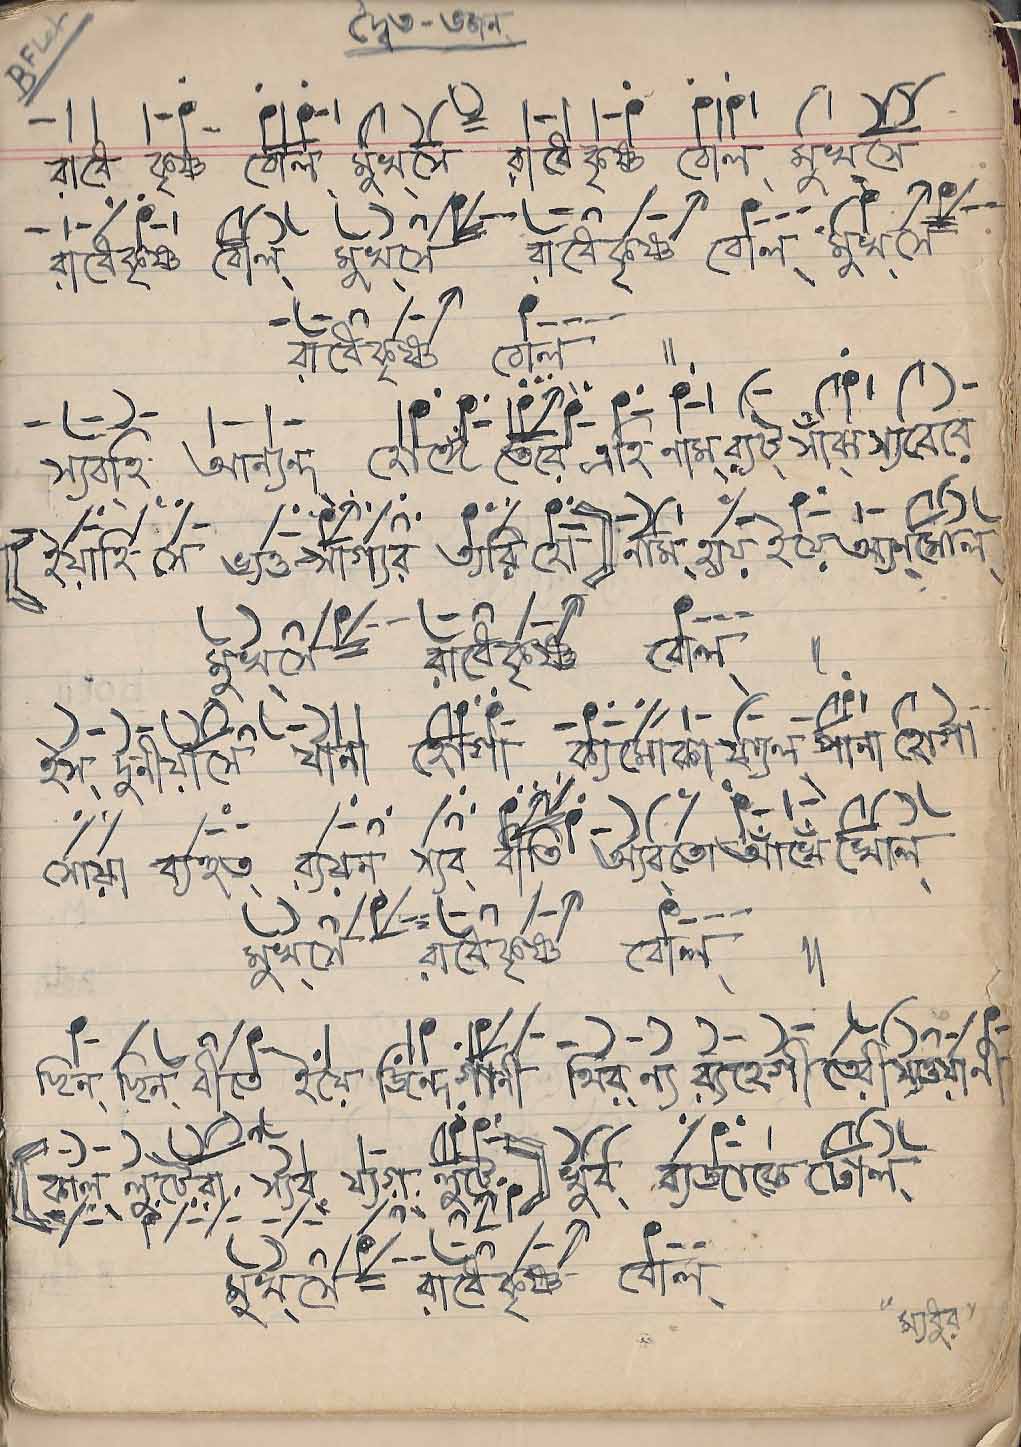 B Flat
দ্বৈত - ভজন
রাধে কৃষ্ণ বোল্ মুখ্সে রাধে কৃষ্ণ বোল্ মুখ্সে
রাধেকৃষ্ণ বোল্ মুখ্সে রাধেকৃষ্ণ বোল্ মুখ্সে
রাধেকৃষ্ণ বোল ॥
স্যবহি আন্যন্দ্ হোঙ্গে তেরে এহি নাম্ র‍্যট্ সাঁঝ্ স্যবেরে
[ইয়াহি সে ভ্যক্ত সাগ্যর ত্যরি হো] নাম্ হ্যয় ইয়ে অ্যন্মোল্
মুখ্সে রাধেকৃষ্ণ বোল্ ॥
ইস্ দুনীয়াসে যানা হোগা ক্যর্মোকা ফ্যল পানা হোগা
সোয়া ব্যহুত্ র‍্যয়ন স্যব্ বীতি অ্যবতো আঁখে খোল্
মুখ্সে রাধেকৃষ্ণ বোল্ ॥
ছিন্ ছিন্ বীতে ইয়ে জিন্দগানী থির্ ন্য র‍্যহেগী তেরী য্যওয়ানী
[কাল্ লুটেরা স্যব্ য্যগ লুটে] খুব্ ব্যজাকে ঢোল্
মুখ্সে রাধেকৃষ্ণ বোল্
"ম্যধুর"